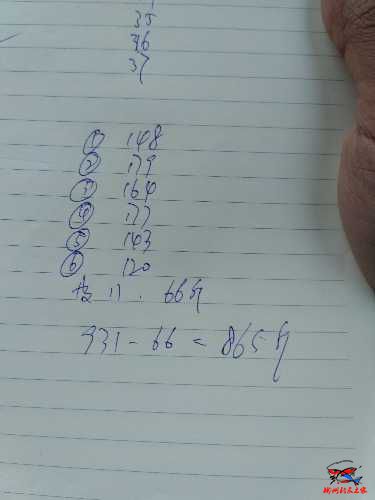 35
36
37
① 148
② 179
③ 164
④ 177
⑤ 143
⑥ 120
11. 66斤
931-66=865斤